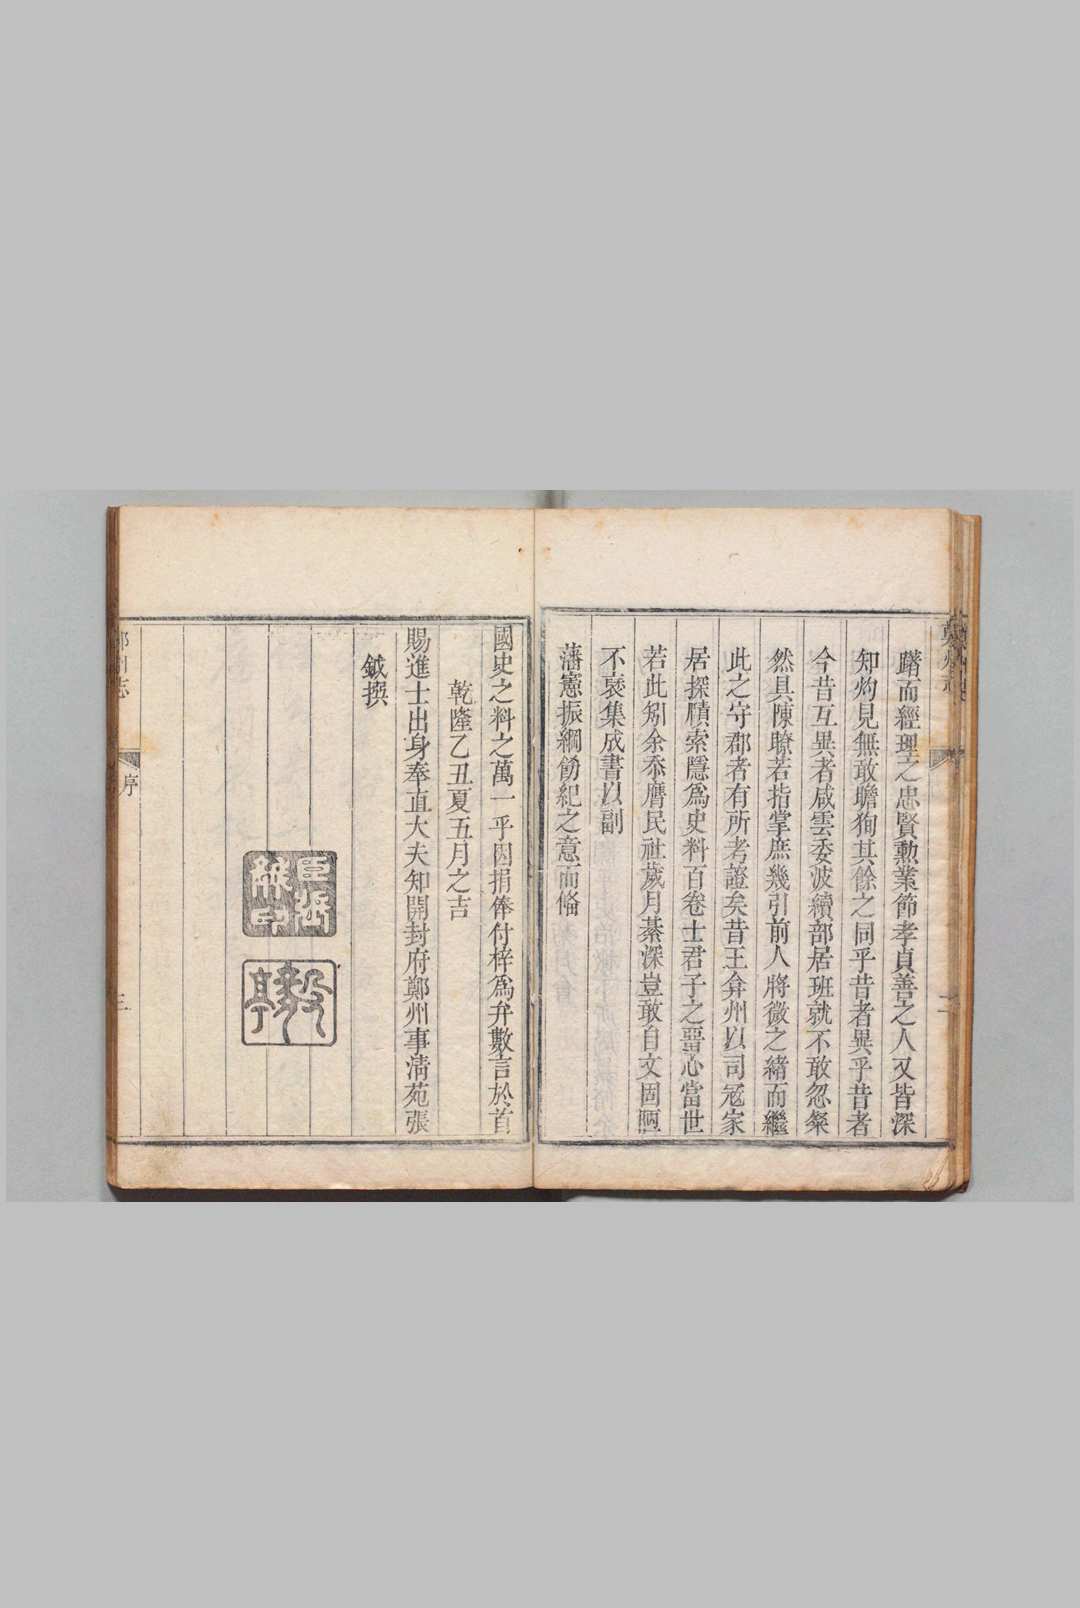 躇而經理之忠賢勲業節孝貞善之人又皆深
知灼見無敢瞻狥其餘之同乎昔者異乎昔者
今昔互異者咸雲委波續部居班就不敢忽粲
然具陳瞭若指掌庶幾引前人將微之緒而繼
此之守郡者有所考證矣昔王弇州以司寇家
居探賾索隱爲史料百卷士君子之留心當世
若此矧余忝膺民社歲月綦深豈敢自文固陋
不裒集成書以副
藩憲振綱飭紀之意而偹
國史之料之萬一乎因捐俸付梓爲弁數言於首
乾隆乙丑夏五月之吉
賜進士出身奉直大夫知開封府鄭州事淸苑張
鉞撰
臣張鉞印
毅亭
鄭州志
序
三